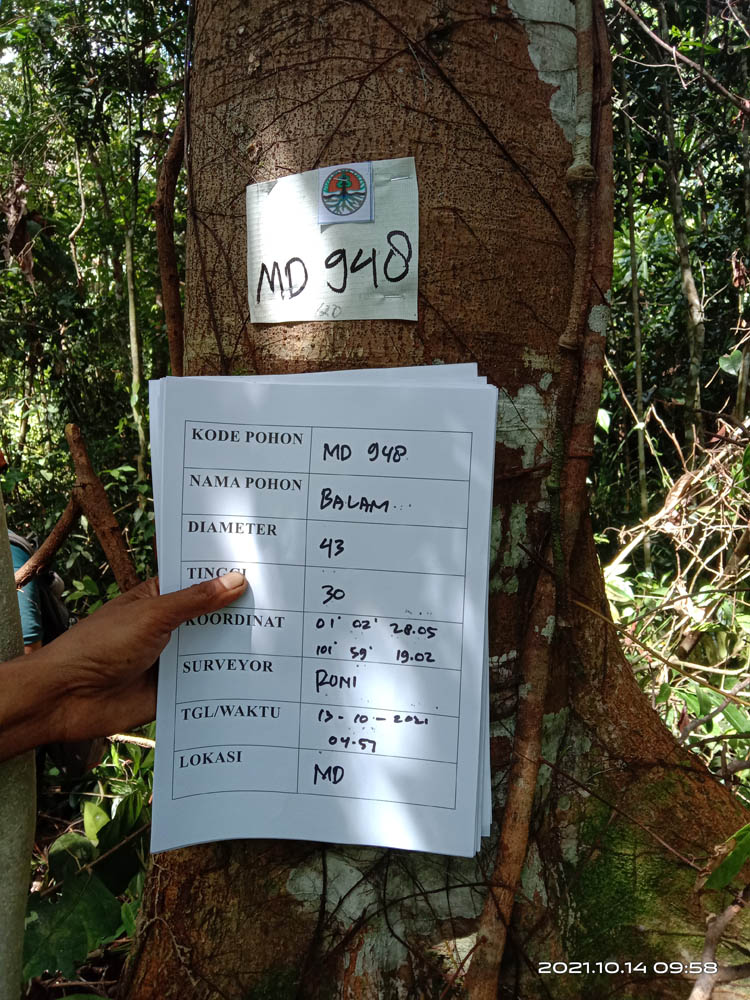 MD 948
KODE POHON MD 948
NAMA POHON BALAM
DIAMETER 43
TINGGI 30
KOORDINAT 01° 02' 28.05
101° 59' 19.02
SURVEYOR RONI
TGL/WAKTU 13-10-2021
04.57
LOKASI MD
2021.10.14 09:58